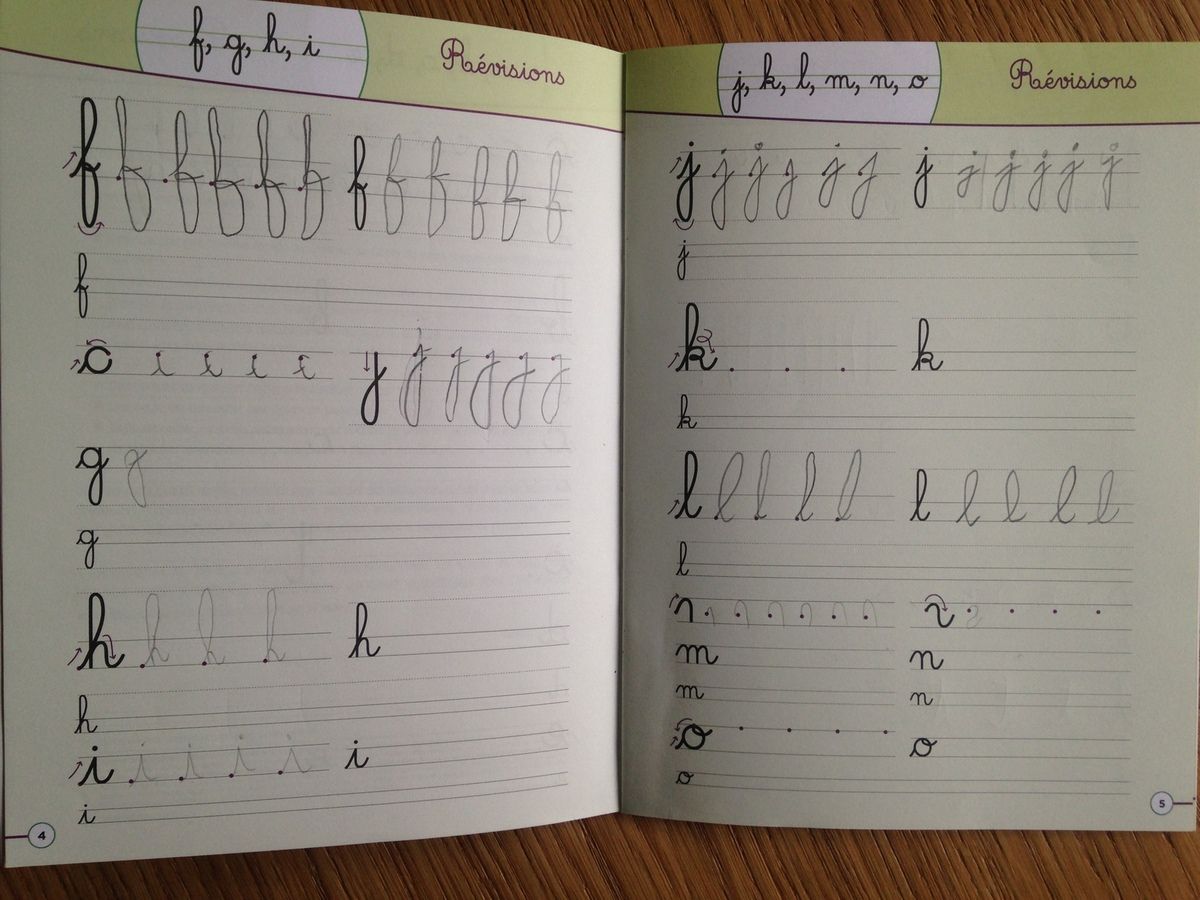 f, g, h, i
Révisions
f f f f f f f f f f f f
f
c
g
g
h h h h h
h
i i i i i i
i
4
j, k, l, m, n, o
Révisions
j j j j j j j j j j j j
j
k k
k
l l l l l l l l l l
l
m n
m n
o o
o
5